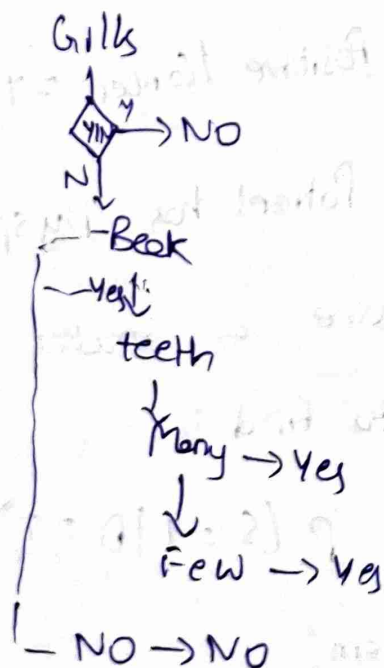 Gills
Y/N Y → NO
N
Beak
Yes
teeth
Many → Yes
Few → Yes
NO → NO